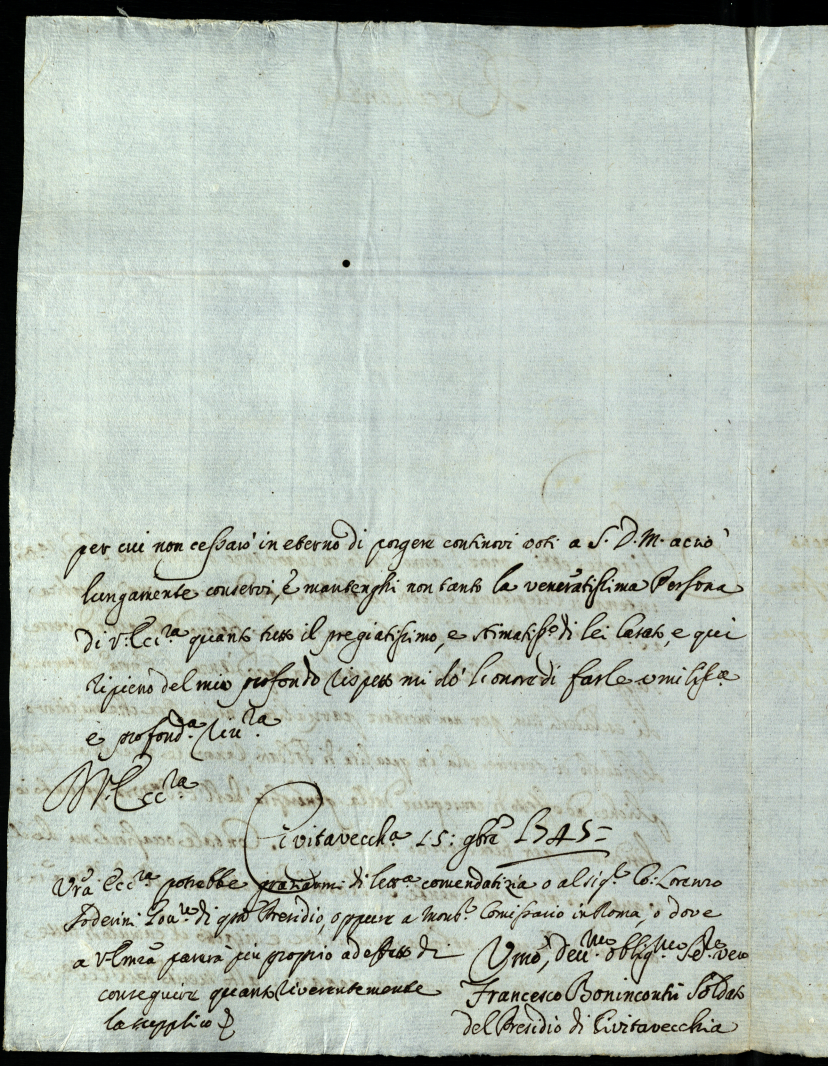 per cui non cesserò in eterno di porgere continovi voti a S. D. M. acciò
lungamente conservi, e mantenghi non tanto la veneratissima Persona
di V. Ecc.ra quanto tutto il pregiatissimo, e stimatiss.o di lei Casato, e qui
ripieno del mio profondo rispetto mi dò l'onore di farle umiliss.a
e profond.a riv.ra
D V. Ecc.ra
Civitavecch.a 15: gbre 1745=
Vra Ecc.ra potrebbe graziarmi di lettra comendatizia o al sig.r Co: Lorenzo
Soderini di qto Presidio, oppure a Mons.r Comissario in Roma, o dove
a V. parerà più proprio ad effetto di
conseguire quanto riverentemente
la supplico
Umo, dev.mo oblig.mo Se.re vero
Francesco Bonincontri Soldato
del Presidio di Civitavecchia